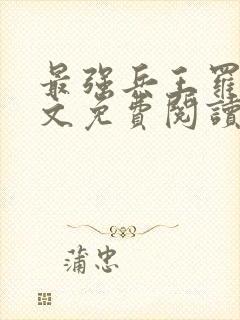 最强兵王羅
文免費閱讀
蒲忠